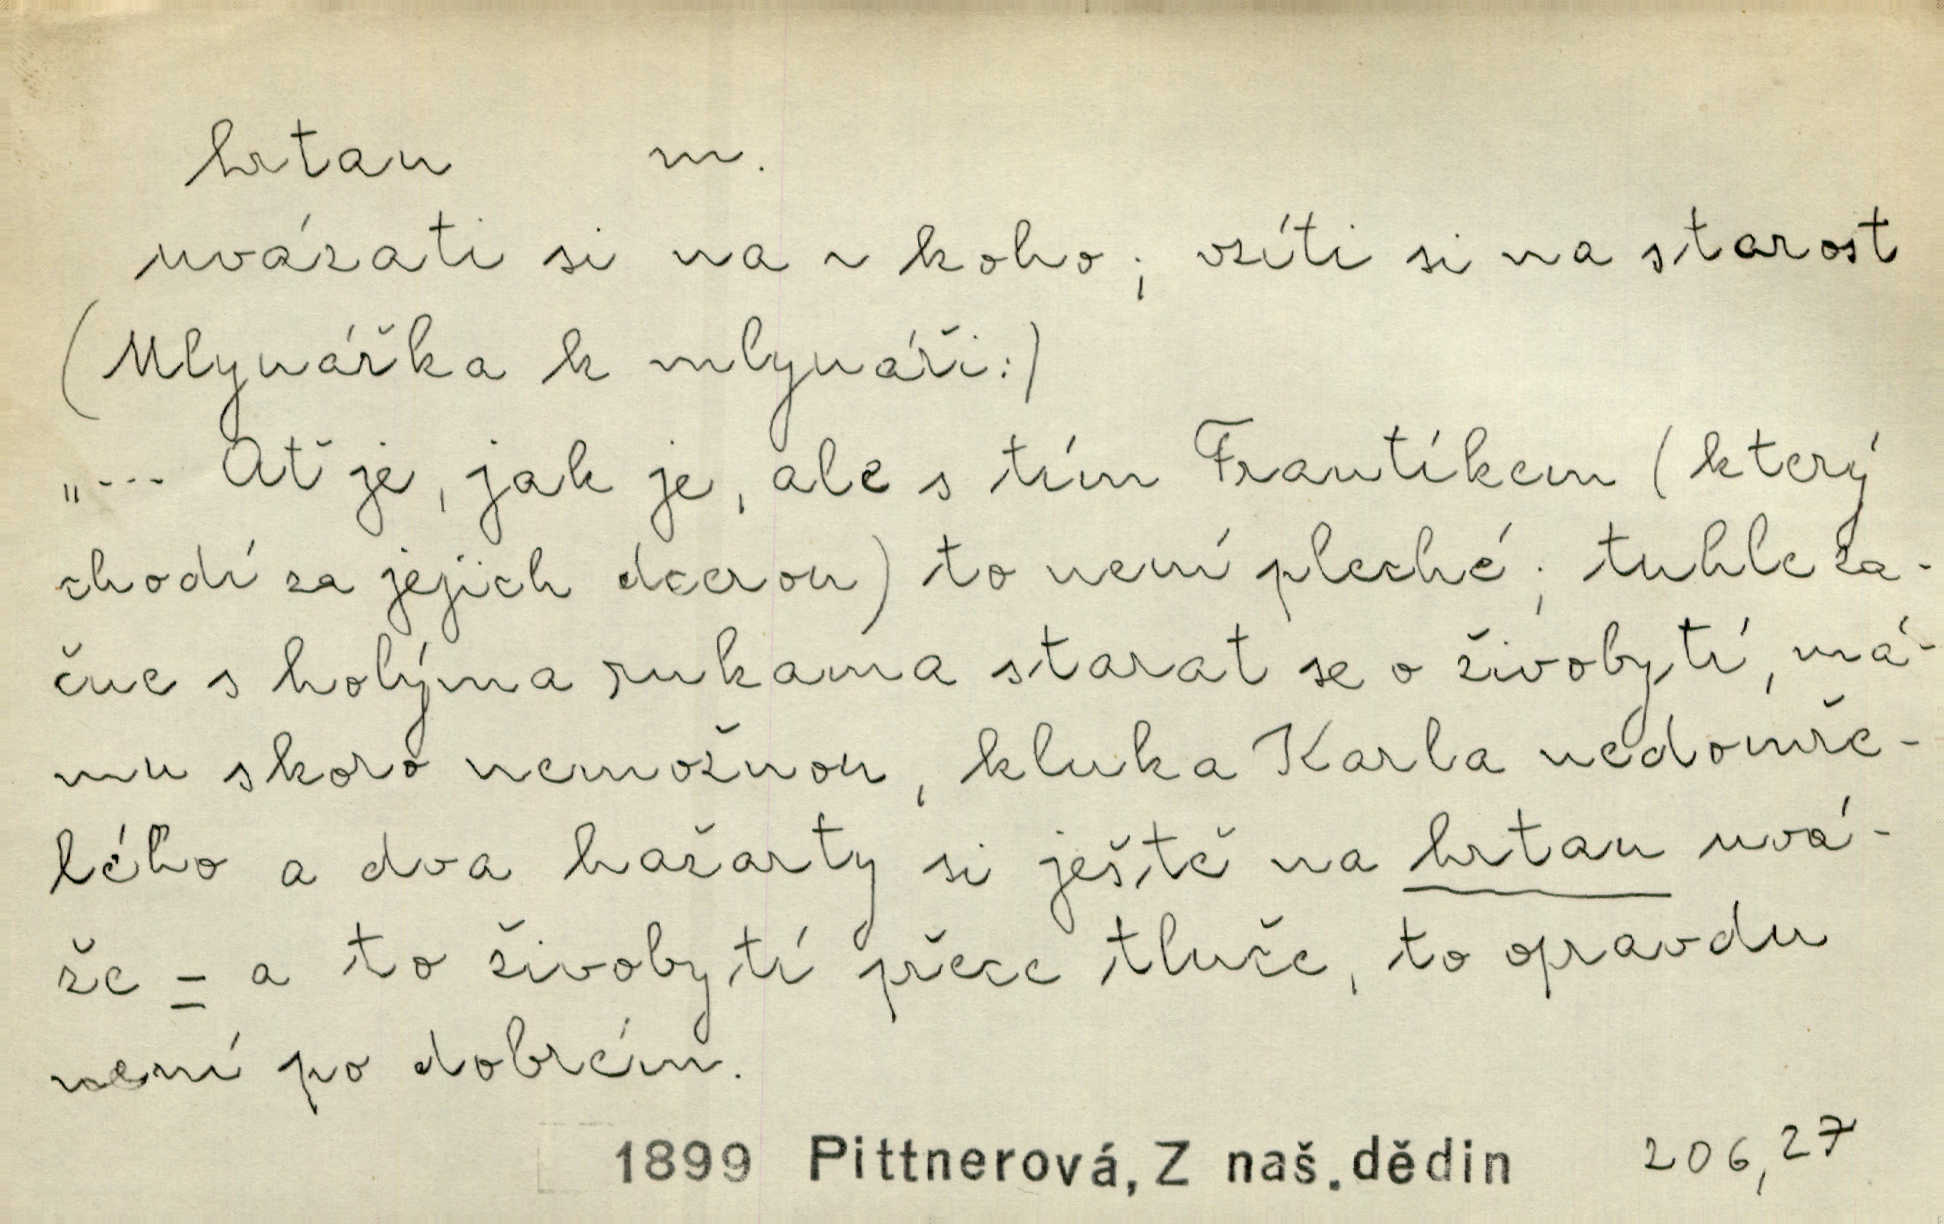 hrtan m.
uvázati si na ~ koho; vzíti si na starost
(Mlynářka k mlynáři:)
„--- Ať je, jak je, ale s tím Frantíkem (který
chodí za jejich dcerou) to není pleché; tuhle za-
čne s holýma rukama starat se o živobytí, má-
mu skoro nemožnou, kluka Karla nedomře-
lého a dva hažarty si ještě na hrtan uvá-
že = a to živobytí přece tluče, to opravdu
není po dobrém.
1899 Pittnerová, Z naš. dědin 206,27